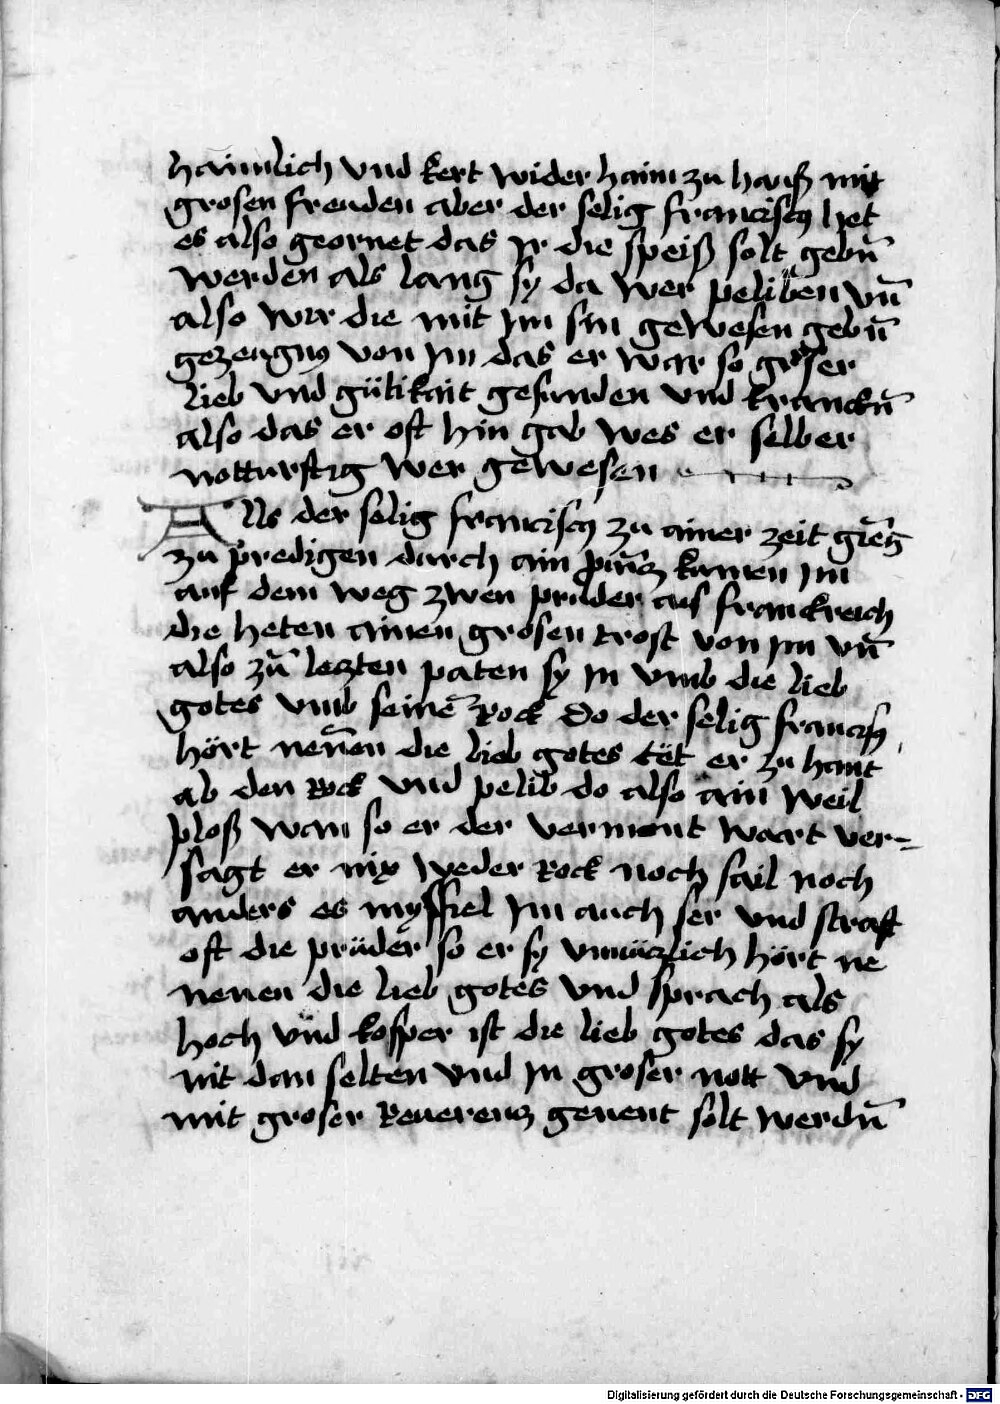 haimlich vnd kert wider haim zu hauß mit
grosen freuden aber der selig francisc9 het
es also geornet das jr die speiß solt gebn̄
werden als lang sy da wer peliben vn̄
also wir die mit jm sin gewesen gebn̄
gezeugnus von jm das er war so groser
lieb vnd gütikait gesunden vnd kranckn̄
also das er oft hin gab wes er selber
notturftig wer gewesen
Als der selig francisc9 zu ainer zeit gieng
zu predigen durch ain kamen jm
auf dem weg zwen prüder aus franckreich
die heten ainen grosen trost von jm vn̄
also zū lezten paten sy jn vmb die lieb
gotes vmb seinē Rock do der selig francisc9
hört nen̄en die lieb gotes tët er zu hant
ab den Rock vnd pelib do also ain weil
ploß wan so er der vermont wart ver-
sagt er nix weder Rock noch sail noch
anders es myßfiel jm auch ser vnd straft
oft die prüder so er sy vnnüczlich hört ne
nenen die lieb gotes vnd sprach als
hoch vnd kosper ist die lieb gotes das sy
nit dan selten vnd jn groser nott vnd
mit groser Reuerencz genent solt werdn̄
Digitalisierung gefördert durch die Deutsche Forschungsgemeinschaft - DFG